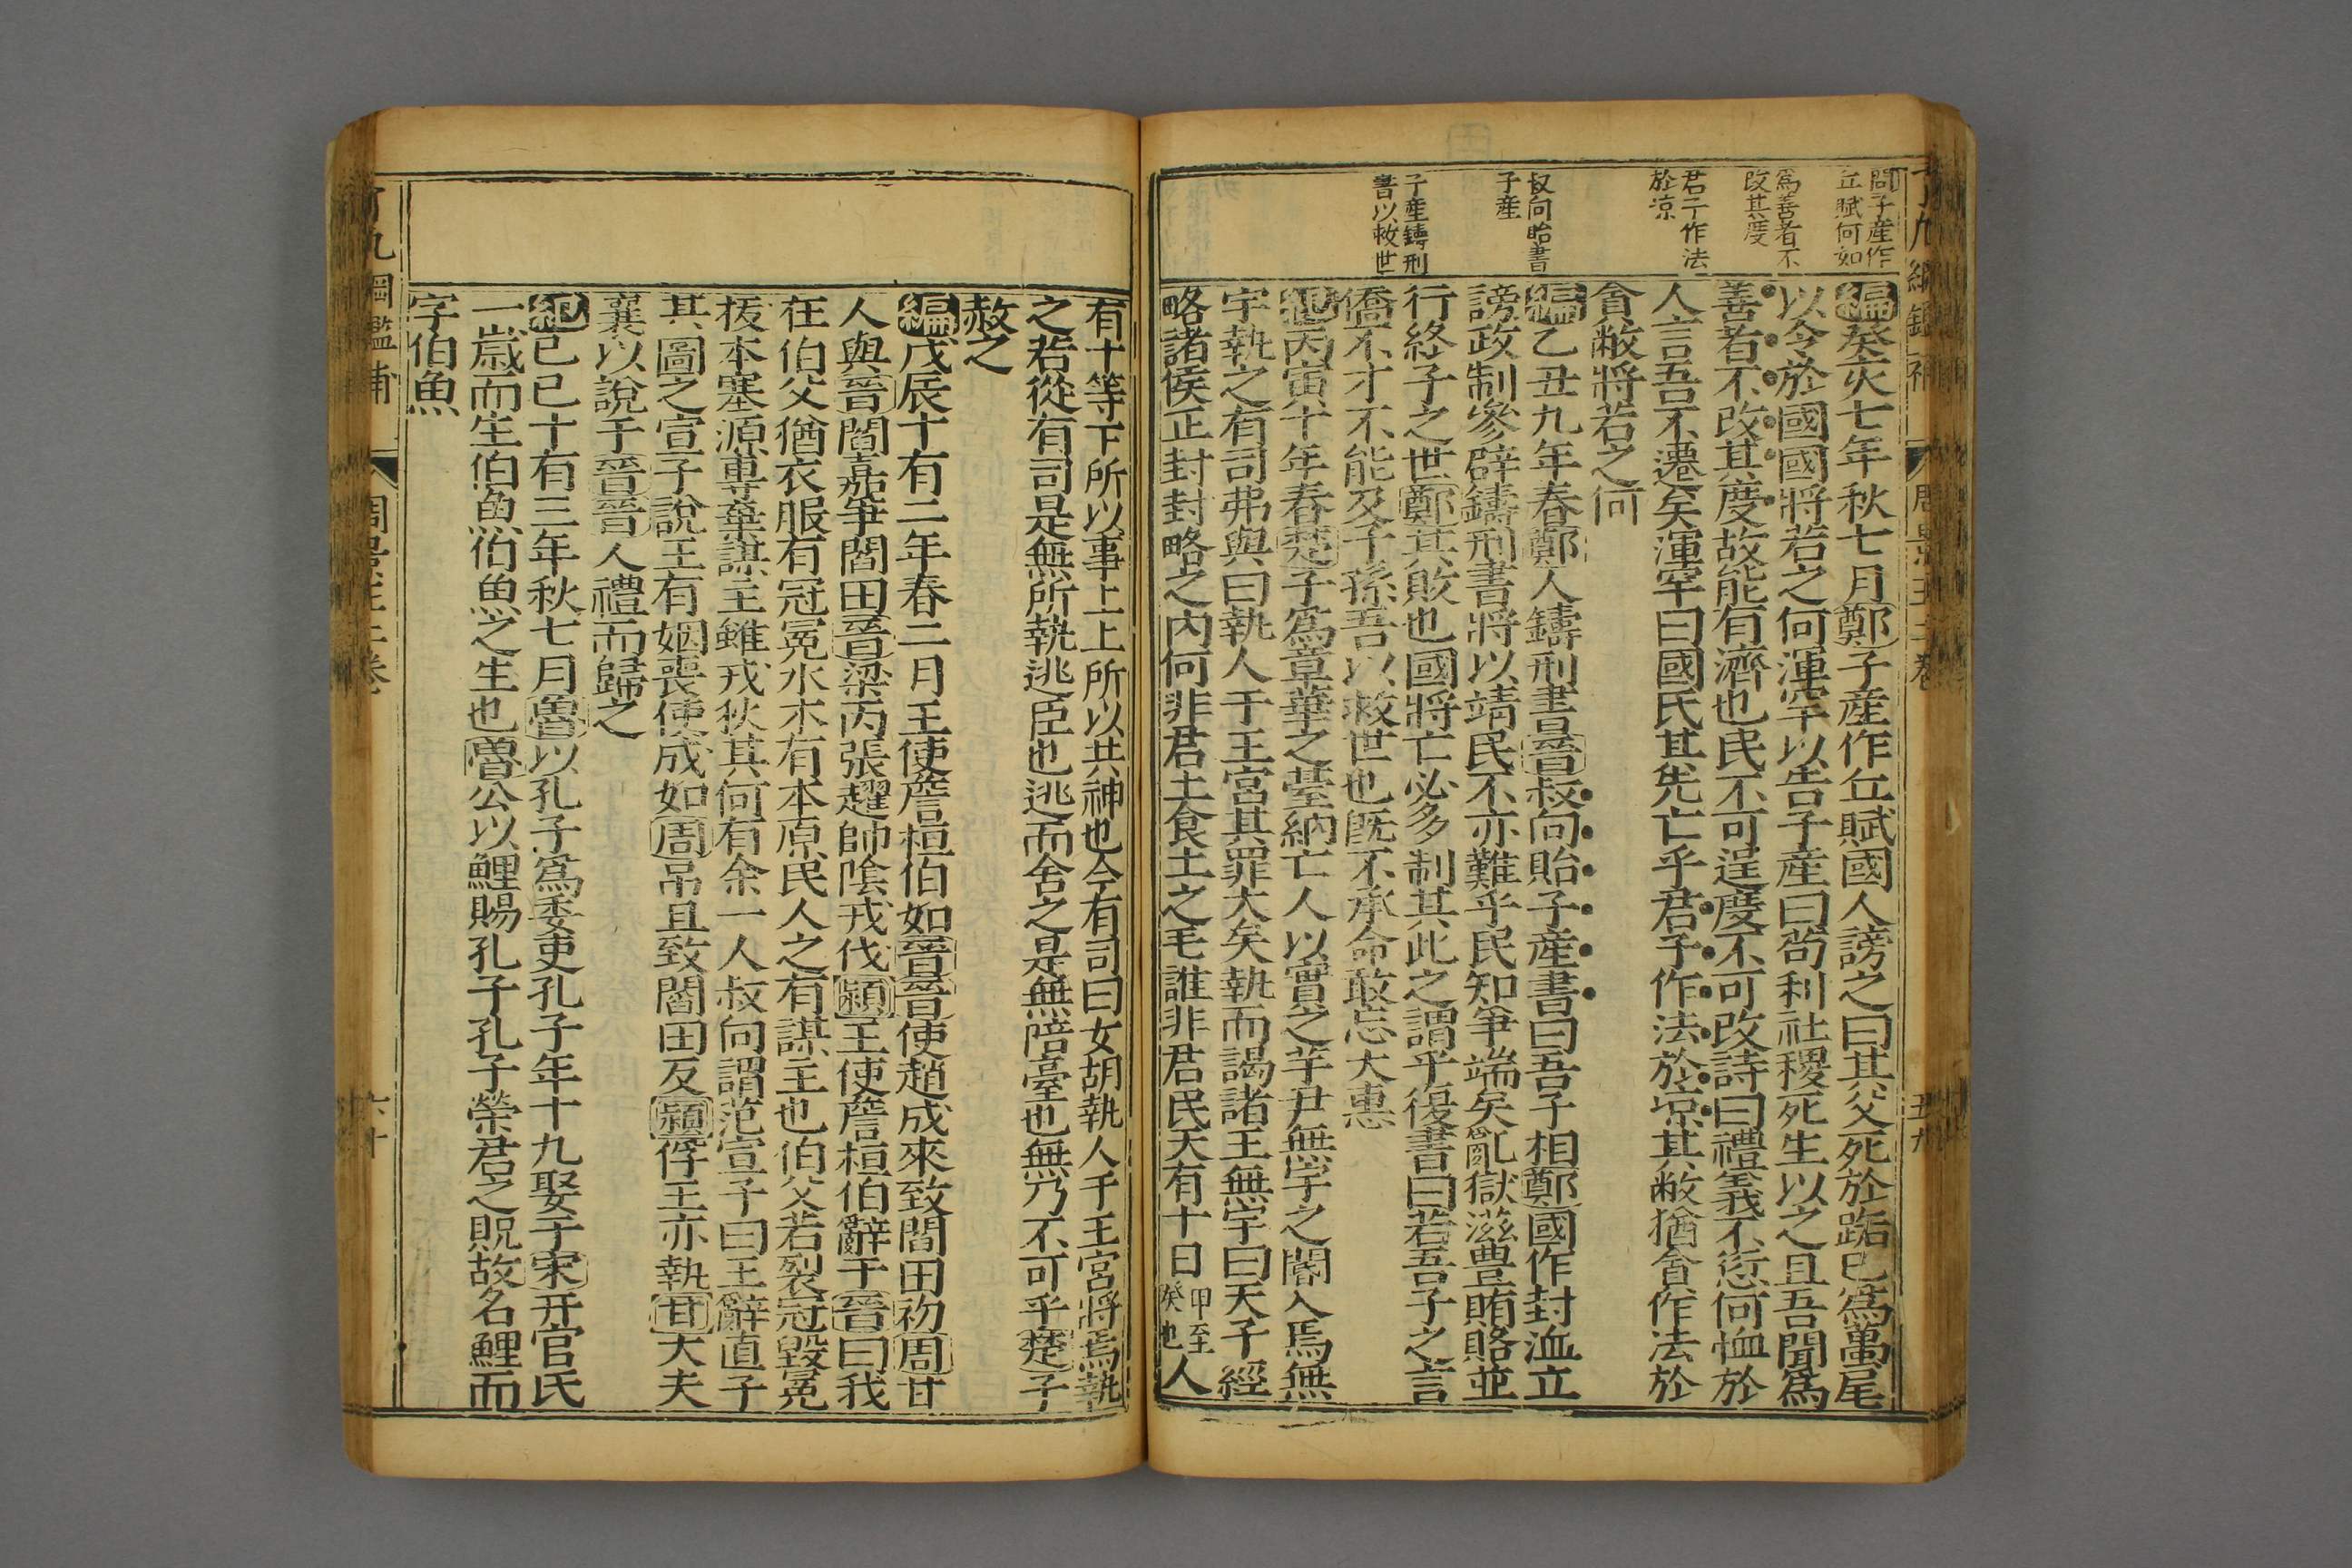 問子產作
丘賦何如
為善者不
改其度
君子作法
於涼
叔向貽書
子產
子產鑄刑
書以救世
編癸亥七年秋七月鄭子產作丘賦國人謗之曰其父死於路己為蠆尾
以令於國國將若之何渾罕以告子產曰苟利社稷死生以之且吾聞為
善者不改其度故能有濟也民不可逞度不可改詩曰禮義不愆何恤於
人言吾不遷矣渾罕曰國氏其先亡乎君子作法於凉其敝猶貪作法於
貪敝將若之何
編乙丑九年春鄭人鑄刑書晉叔向貽子產書曰吾子相鄭國作封洫立
謗政制參辟鑄刑書將以靖民不亦難乎民知爭端矣亂獄滋豊賄賂並
行終子之世鄭其敗也國將亡必多制其此之謂乎復書曰若吾子之言
僑不才不能及子孫吾以救世也既不承命敢忘大惠
紀丙寅十年春楚子為章華之臺納亡人以實之芋尹無宇之閽入焉無
宇執之有司弗與曰執人于王宮其罪大矣執而謁諸王無宇曰天子經
略諸侯正封封略之內何非君土食土之毛誰非君民天有十日甲至癸也人
有十等下所以事上上所以共神也今有司曰女胡執人于王宮將焉執
之若從有司是無所執逃臣也逃而舍之是無陪臺也無乃不可乎楚子
赦之
編戊辰十有二年春二月王使詹桓伯如晉晉使趙成來致閻田初周甘
人與晉閻嘉爭閻田晉梁丙張趯帥陰戎伐潁王使詹桓伯辭于晉曰我
在伯父猶衣服有冠冕水木有本原民人之有謀主也伯父若裂冠毀冕
拔本塞源專棄謀主雖戎狄其何有余一人叔向謂范宣子曰王辭直子
其圖之宣子說王有姻喪使成如周吊且致閻田反潁俘王亦執甘大夫
襄以說于晉晉人禮而歸之
紀己巳十有三年秋七月魯以孔子為委吏孔子年十九娶于宋幵官氏
一歲而生伯魚伯魚之生也魯公以鯉賜孔子孔子榮君之貺故名鯉而
字伯魚
了凡綱鑑補
周景王二卷
六十